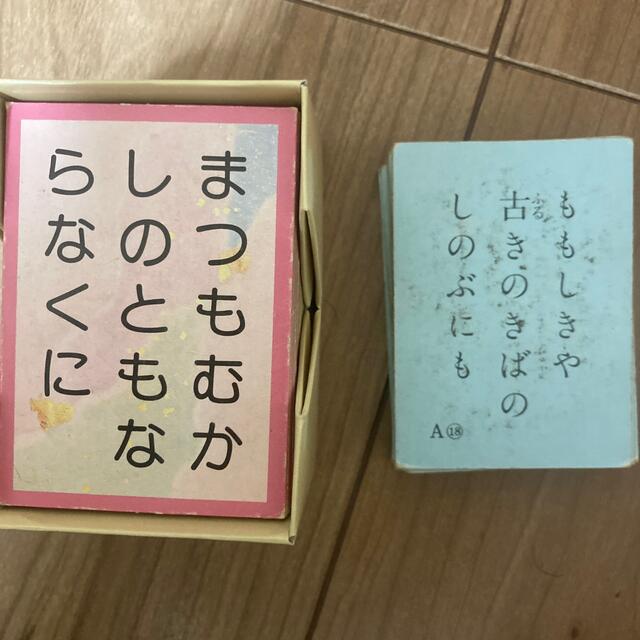 まつもむか
しのともな
らなくに
ももしきや
古きのきばの
ふる
しのぶにも
A⑱